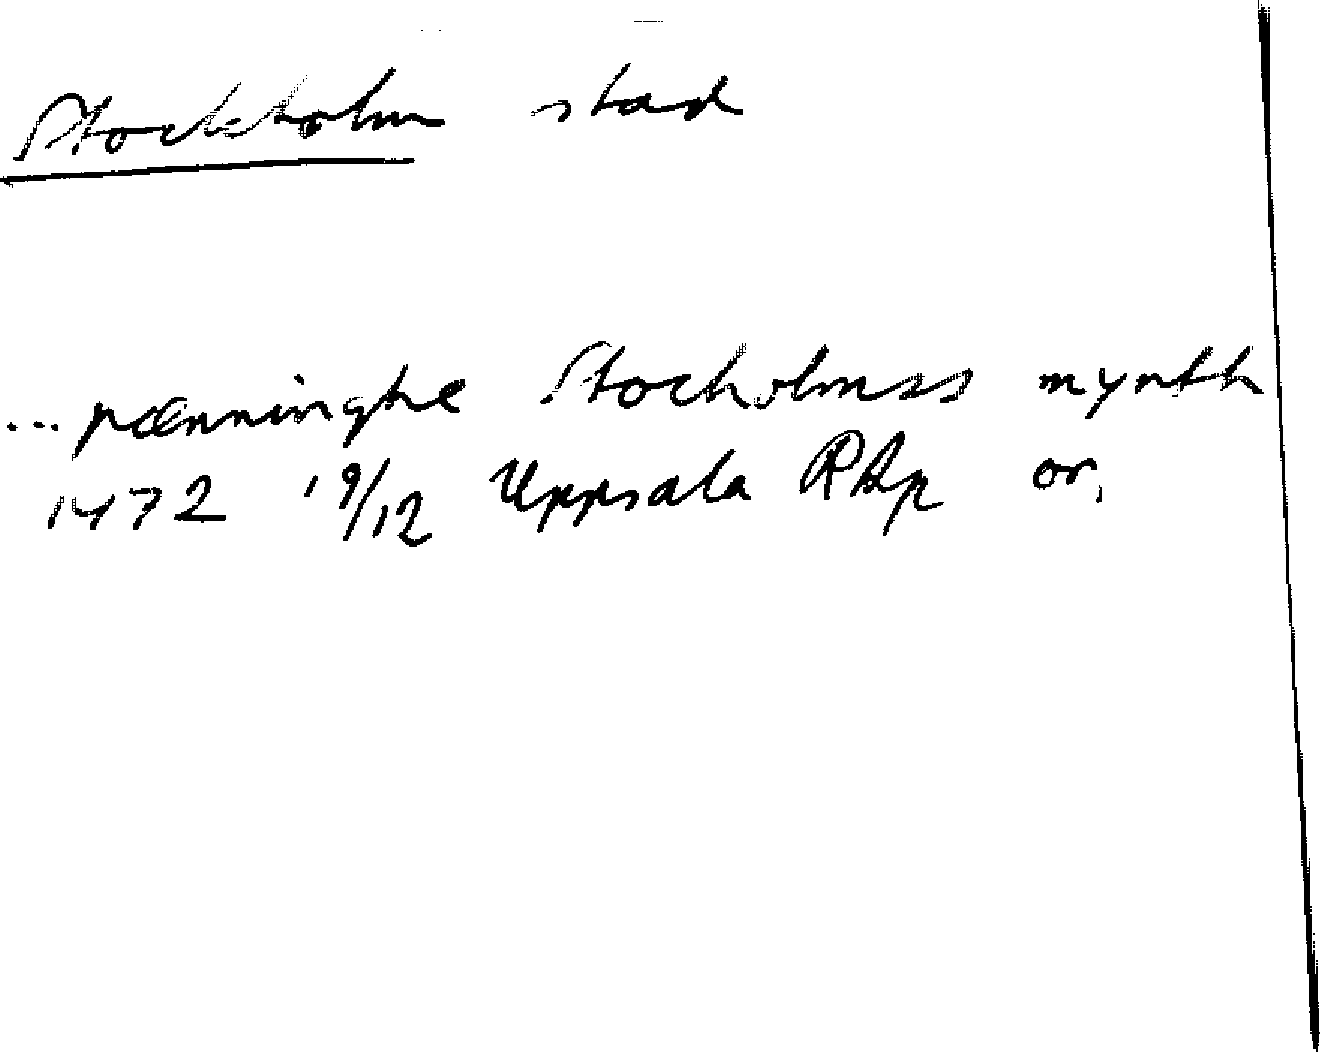 Stockholm stad
... pænninghe Stocholmss mynth
1472 19/12 Uppsala RAp or.